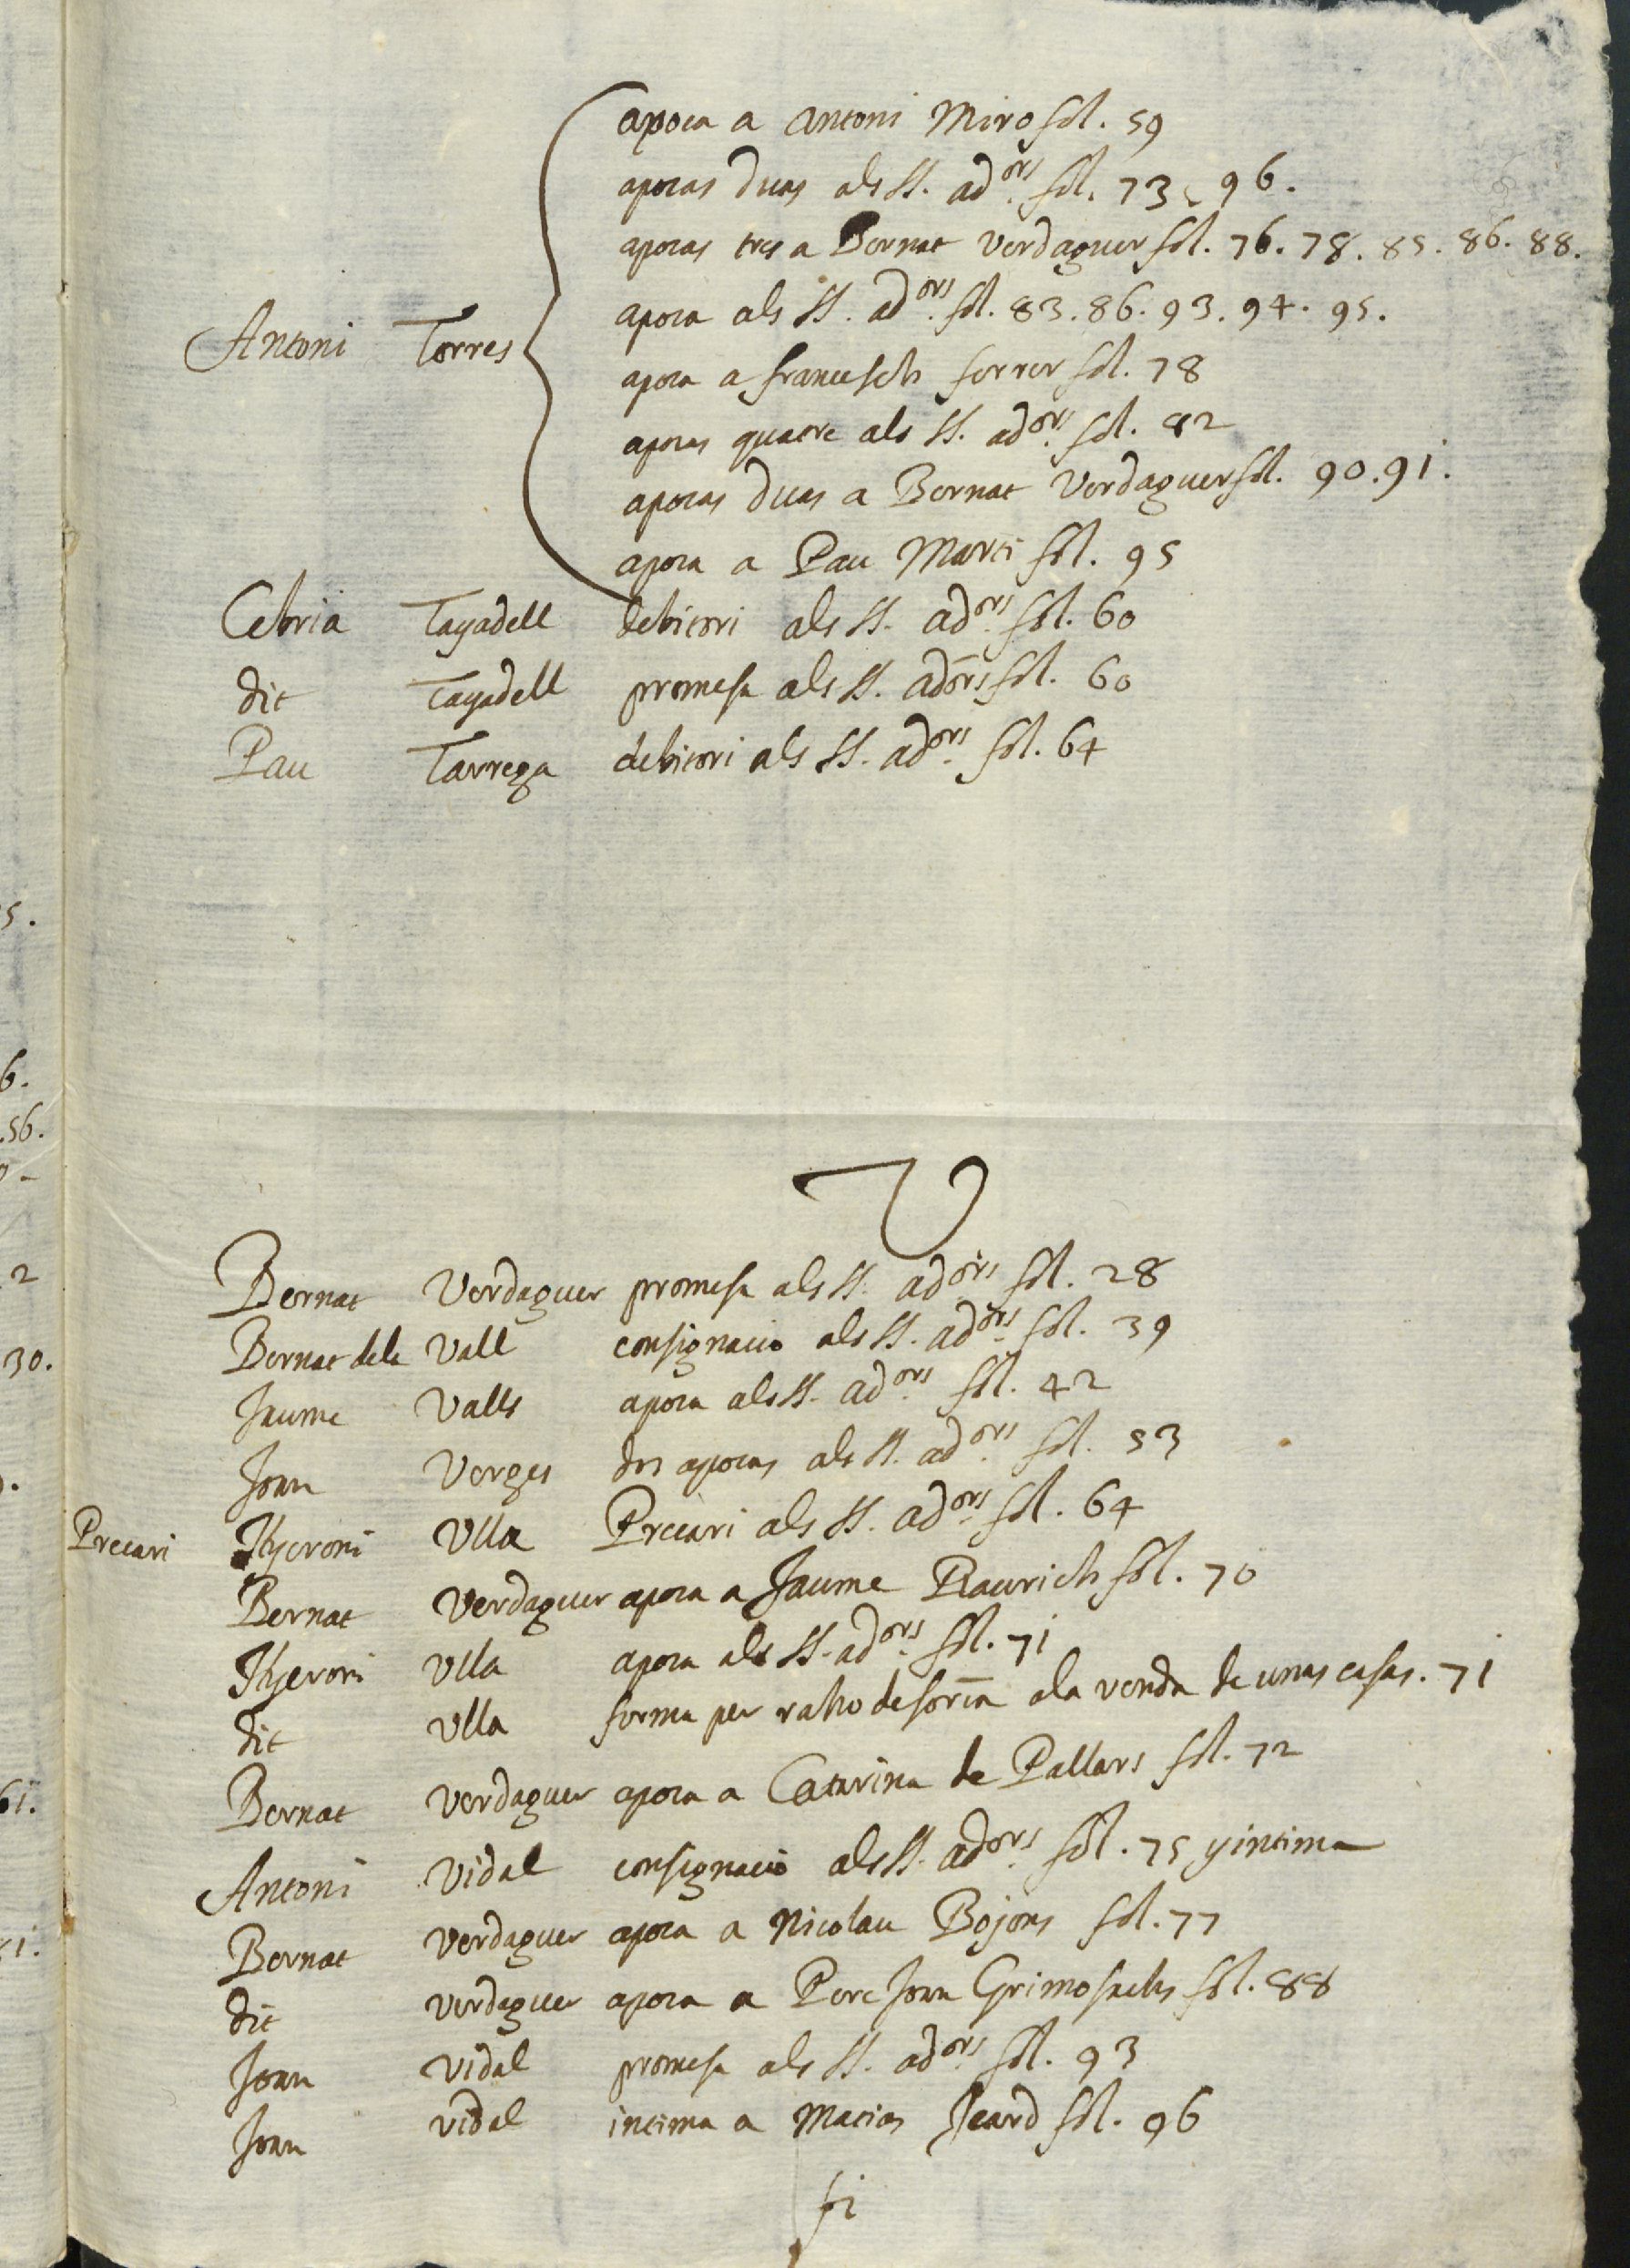 apoca a Antoni Miro fol. 59
apocas duas als SS. adors. fol. 73. 96.
apocas tres a Bernat Verdaguer fol. 76. 78. 85. 86. 88.
apoca als SS. adors. fol. 83. 86. 93. 94. 95.
Antoni Torres
apoca a francesch ferrer fol. 78
apocas quatre als SS. adors. fol. 82
apocas duas a Bernat Verdaguer fol. 90. 91.
apoca a Pau Marti fol. 95
Cebria Tayadell debitori als SS. adors. fol. 60
dit Tayadell promesa als SS. adors fol. 60
Pau Tarrega debitori als SS. adors. fol. 64
V
Bernat Verdaguer promesa als SS. adors. fol. 28
Bernat dela Vall consignacio als SS. adors. fol. 39
Jaume Valls apoca als SS. adors. fol. 42
Joan Verges dos apocas als SS. adors. fol. 53
Precari Hyeroni Ulla Precari als SS. adors. fol. 64
Bernat Verdaguer apoca a Jaume Raurich fol. 70
Hyeroni Ulla apoca als SS. adors. fol. 71
dit Ulla ferma per raho de la venda de unas casas. 71
Bernat Verdaguer apoca a Catarina de Pallars fol. 72
Antoni Vidal consignacio als SS. adors. fol. 75 y intima
Bernat Verdaguer apoca a Nicolau Bojons fol. 77
dit Verdaguer apoca a Pere Joan Grimosachs fol. 88
Joan Vidal promesa als SS. adors. fol. 93
Joan Vidal intima a Macias Icard fol. 96
fi